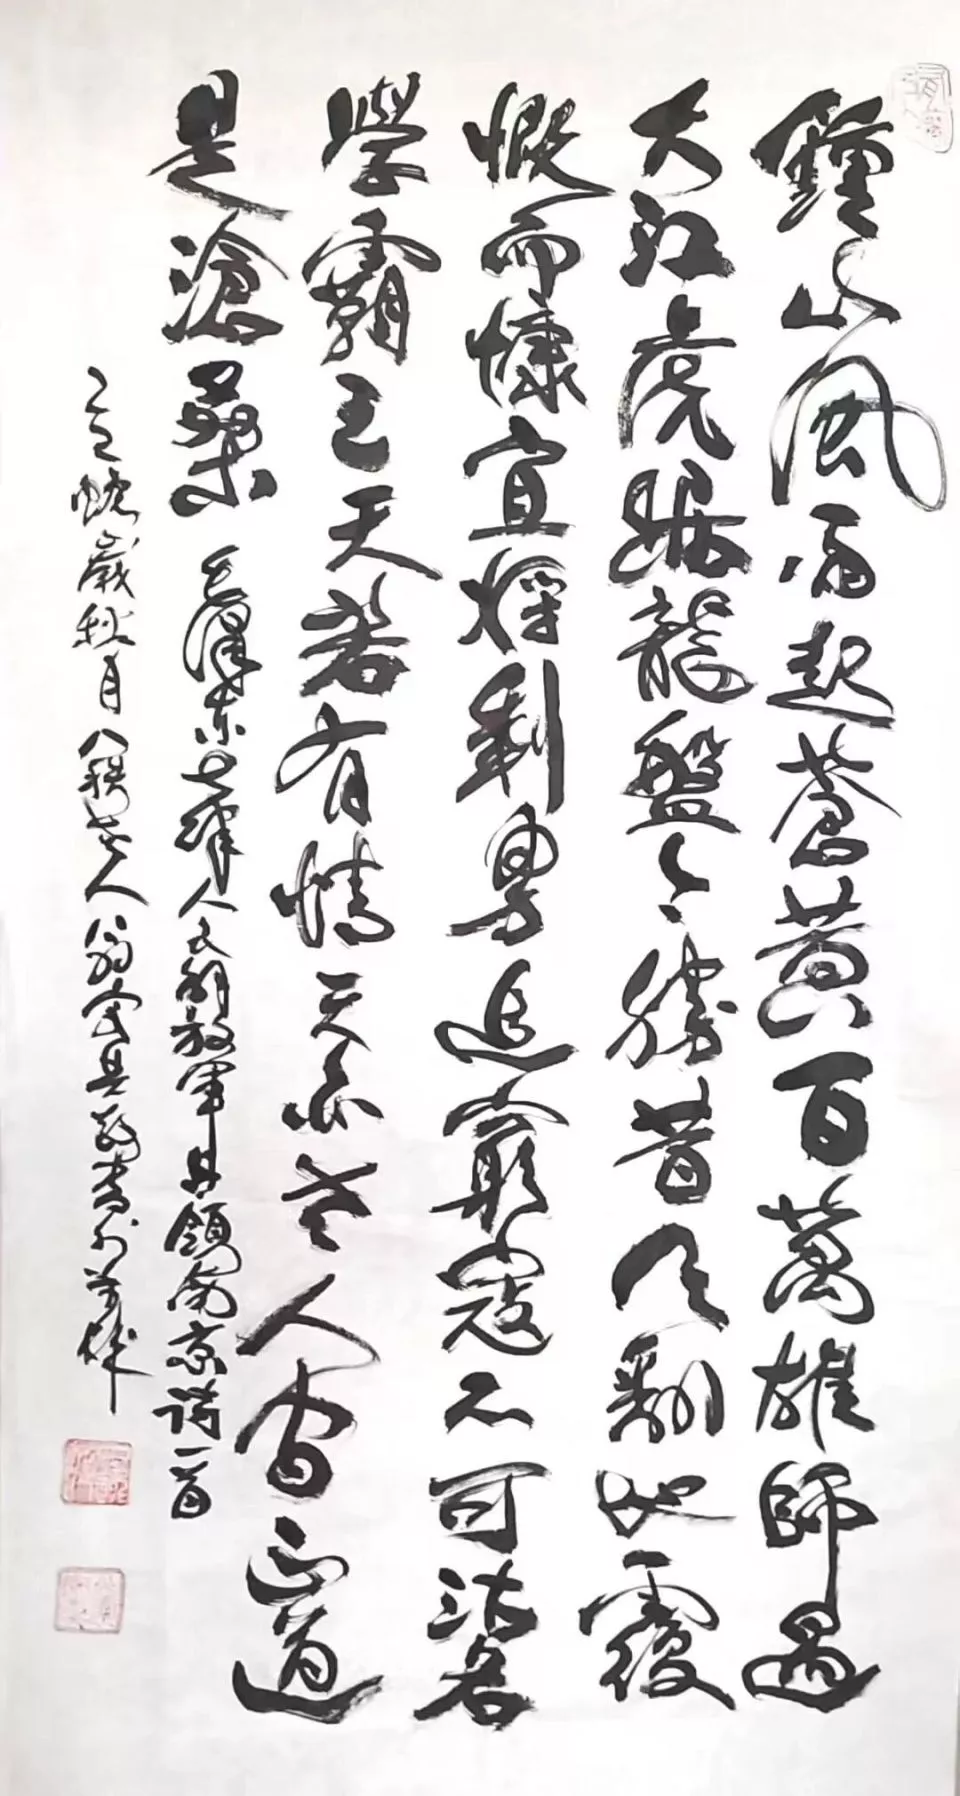 鍾山風雨起蒼黃百萬雄師過
大江虎踞龍盤今勝昔天翻地覆
慨而慷宜將剩勇追窮寇不可沽名
學霸王天若有情天亦老人間正道
是滄桑 毛澤東七律人民解放軍占領南京詩一首
蛇歲秋月八秩老人翁